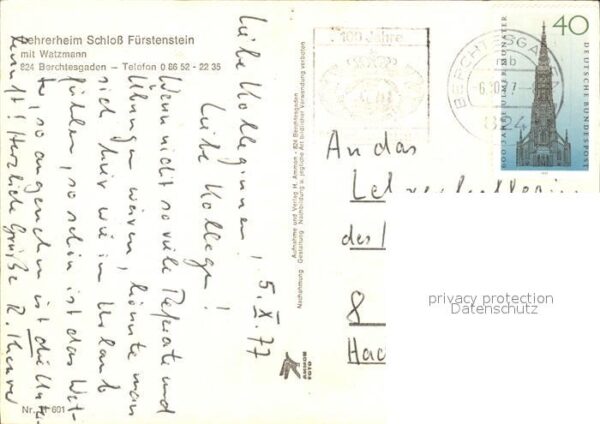 Lehrerheim Schloß Fürstenstein
mit Watzmann
824 Berchtesgaden – Telefon 0 86 52 - 22 35
5. X. 77
Liebe Kolleginnen!
Liebe Kollegen!
Wenn nicht so viele Referate und
Übungen wären, könnte man
sich hier wie im Urlaub
fühlen, so schön ist das Wet-
ter, so angenehm ist die Unter-
kunft! Herzliche Grüße R.
Nr. 601
Aufnahme und Verlag H. Ammon - 824 Berchtesgaden
Nachahmung, Gestaltung, Nachbildung u. jegliche Art bildlicher Verwendung verboten
AMMON
FOTO
100 Jahre
BERCHTESGADEN
8240
40
DEUTSCHE BUNDESPOST
600 JAHRE ULMER MÜNSTER
An das
des
8
privacy protection
Datenschutz